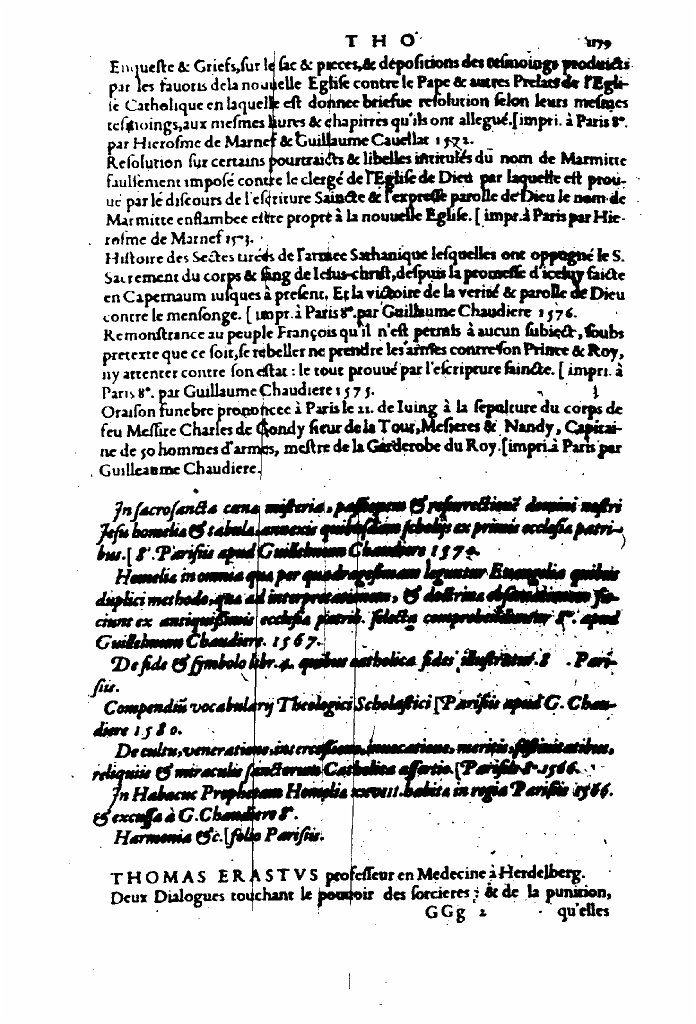 T H O 1179
Enqueste & Griefs, sur le sac & pieces, & depositions des tesmoings produicts
par les fauoris de la nouuelle Eglise contre le Pape & autres Prelats de l'Egli-
se Catholique en laquelle est donnee briefue resolution selon leurs mesmes
tesmoings, aux mesmes liures & chapitres qu'ils ont allegué. [impri. à Paris 8º.
par Hierosme de Marnef & Guillaume Cauellat 1572.
Resolution sur certains pourtraicts & libelles intitulés du nom de Marmitte
faulsement imposé contre le clergé de l'Eglise de Dieu par laquelle est prou-
ué par le discours de l'escriture Saincte & l'expresse parolle de Dieu le nom de
Marmitte enflambee estre propre à la nouuelle Eglise. [ impr. à Paris par Hie-
rosme de Marnef 1573.
Histoire des Sectes tirées de l'armee Sathanique lesquelles ont oppugné le S.
Sacrement du corps & sang de Iesus-christ, despuis la promesse d'icelluy faicte
en Capernaum iusques à present. Et la victoire de la verité & parolle de Dieu
contre le mensonge. [ impr. à Paris 8º. par Guillaume Chaudiere 1576.
Remonstrance au peuple François qu'il n'est permis à aucun subiect, soubs
pretexte que ce soit, se rebeller ne prendre les armes contre son Prince & Roy,
ny attenter contre son estat : le tout prouué par l'escripture saincte. [ impri. à
Paris 8º. par Guillaume Chaudiere 1575.
Oraison funebre prononcee à Paris le 21. de Iuing à la sepulture du corps de
feu Messire Charles de Gondy sieur de la Tour, Mesieres & Nandy, Capitai-
ne de 50 hommes d'armes, mestre de la Garderobe du Roy. [impri. à Paris par
Guilleaume Chaudiere.
In sacrosancta cœnæ misteria, passionem & resurrectionẽ domini nostri
Jesu homeliæ & tabulæ annexis quibusdam scholijs ex primis ecclesiæ patri-
bus. [ 8º. Parisiis apud Guillelmum Chaudiere 1574.
Homeliæ in omnia quæ per quadragesimam leguntur Euangelia quibus
duplici methodo, quæ ad interpretationem, & doctrinæ faciunt
ciunt ex antiquissimis ecclesiæ patrib. selecta comprehenduntur 8º. apud
Guillelmum Chaudiere. 1567.
De fide & symbolo libr. 4. quibus catholica fides illustratur. 8 . Pari-
siis.
Compendiũ vocabularij Theologici Scholastici [Parisiis apud G. Chau-
diere 1580.
De cultu, veneratione, intercessione, inuocatione, meritis, festiuitatibus,
reliquiis & miraculis sanctorum Catholica assertio. [Parisiis 8º. 1566.
In Habacuc Prophetam Homeliæ xxviii. habitæ in regia Parisiis 1566.
& excussæ à G. Chaudiere 8º.
Harmonia &c. [folio Parisiis.
THOMAS ERASTVS professeur en Medecine à Herdelberg.
Deux Dialogues touchant le pouuoir des sorcieres ; & de la punition,
GGg 2 qu'elles